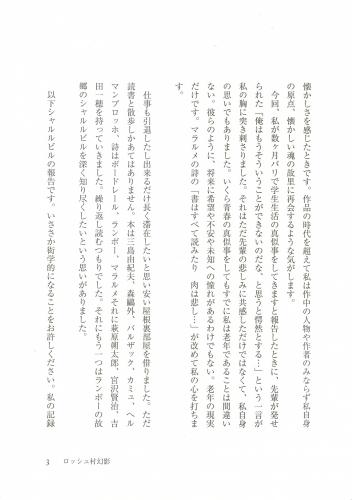 懐かしさを感じたときです。作品の時代を超えて私は作中の人物や作者のみならず私自身
の原点、懐かしい魂の故里に再会するような気がします。
　今回、私が数ヶ月パリで学生生活の真似事をしてきますと報告したときに、先輩が発せ
られた「俺はもうそういうことができないのだな、と思うと愕然とする…」という一言が
私の胸に突き刺さりました。それはただ先輩の悲しみに共感しただけではなくて、私自身
の思いでもありました。いくら青春の真似事をしてもすでに私は老年であることは間違い
ない。彼らのように、将来に希望や不安や未知への憧れがあるわけでもない。老年の現実
だけです。マラルメの詩の「書はすべて読みたり　肉は悲し…」が改めて私の心を打ちま
す。
　仕事も引退したし出来るだけ長く滞在したいと思い安い屋根裏部屋を借りました。ただ
読書と散歩しかあてはありません。本は三島由紀夫、森鷗外、バルザック、カミュ、ヘル
マンブロッホ、詩はボードレール、ランボー、マラルメそれに萩原朔太郎、宮沢賢治、吉
田一穂を持っていきました。繰り返し読むつもりでした。それにもう一つはランボーの故
郷のシャルルビルを深く知り尽くしたいという思いがありました。
　以下シャルルビルの報告です。いささか衒学的になることをお許しください。私の記録
3　ロッシュ村幻影